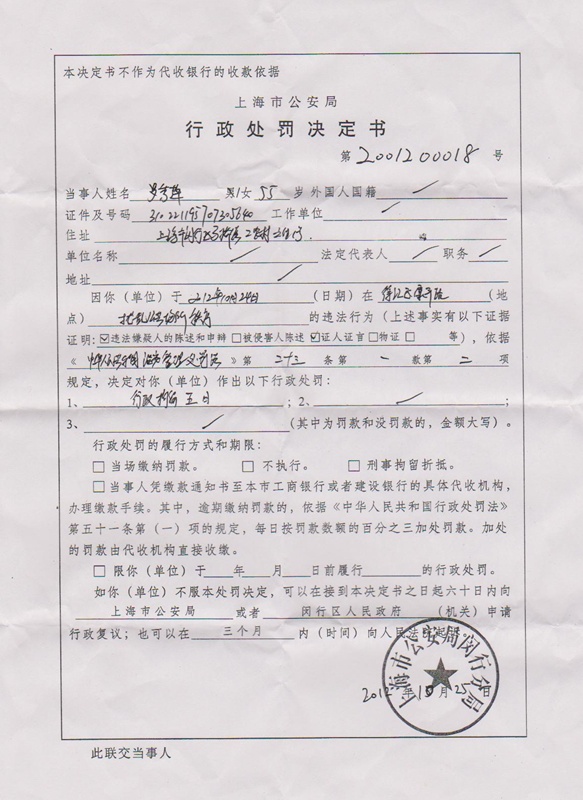 本决定书不作为代收银行的收款依据
上海市公安局
行政处罚决定书
第 2001200018 号
当事人姓名 男/女 55 岁 外国人国籍 /
证件及号码 310221195707305640 工作单位 /
住址 上海市闵行区
单位名称 / 法定代表人 / 职务 /
地址 /
因你（单位）于 2012年10月24日 （日期）在 （地
点） 扰乱公共场所秩序 的违法行为（上述事实有以下证据
证明：☑违法嫌疑人的陈述和申辩 □被侵害人陈述 ☑证人证言 □物证 □ 等），依据
《 中华人民共和国治安管理处罚法 》第 二十三 条第 一 款第 二 项
规定，决定对你（单位）作出以下行政处罚：
1、 行政拘留五日 ；2、 / ；
3、 / （其中为罚款和没罚款的，金额大写）。
行政处罚的履行方式和期限：
□ 当场缴纳罚款。 □ 不执行。 □ 刑事拘留折抵。
□ 当事人凭缴款通知书至本市工商银行或者建设银行的具体代收机构，
办理缴款手续。其中，逾期缴纳罚款的，依据《中华人民共和国行政处罚法》
第五十一条第（一）项的规定，每日按罚款数额的百分之三加处罚款。加处
的罚款由代收机构直接收缴。
□ 限你（单位）于 年 月 日前履行 的行政处罚。
如你（单位）不服本处罚决定，可以在接到本决定书之日起六十日内向
上海市公安局 或者 闵行区人民政府 （机关）申请
行政复议；也可以在 三个月 内（时间）向人民法院起诉。
上海市公安局闵行分局
2012 年 10 月 25 日
此联交当事人